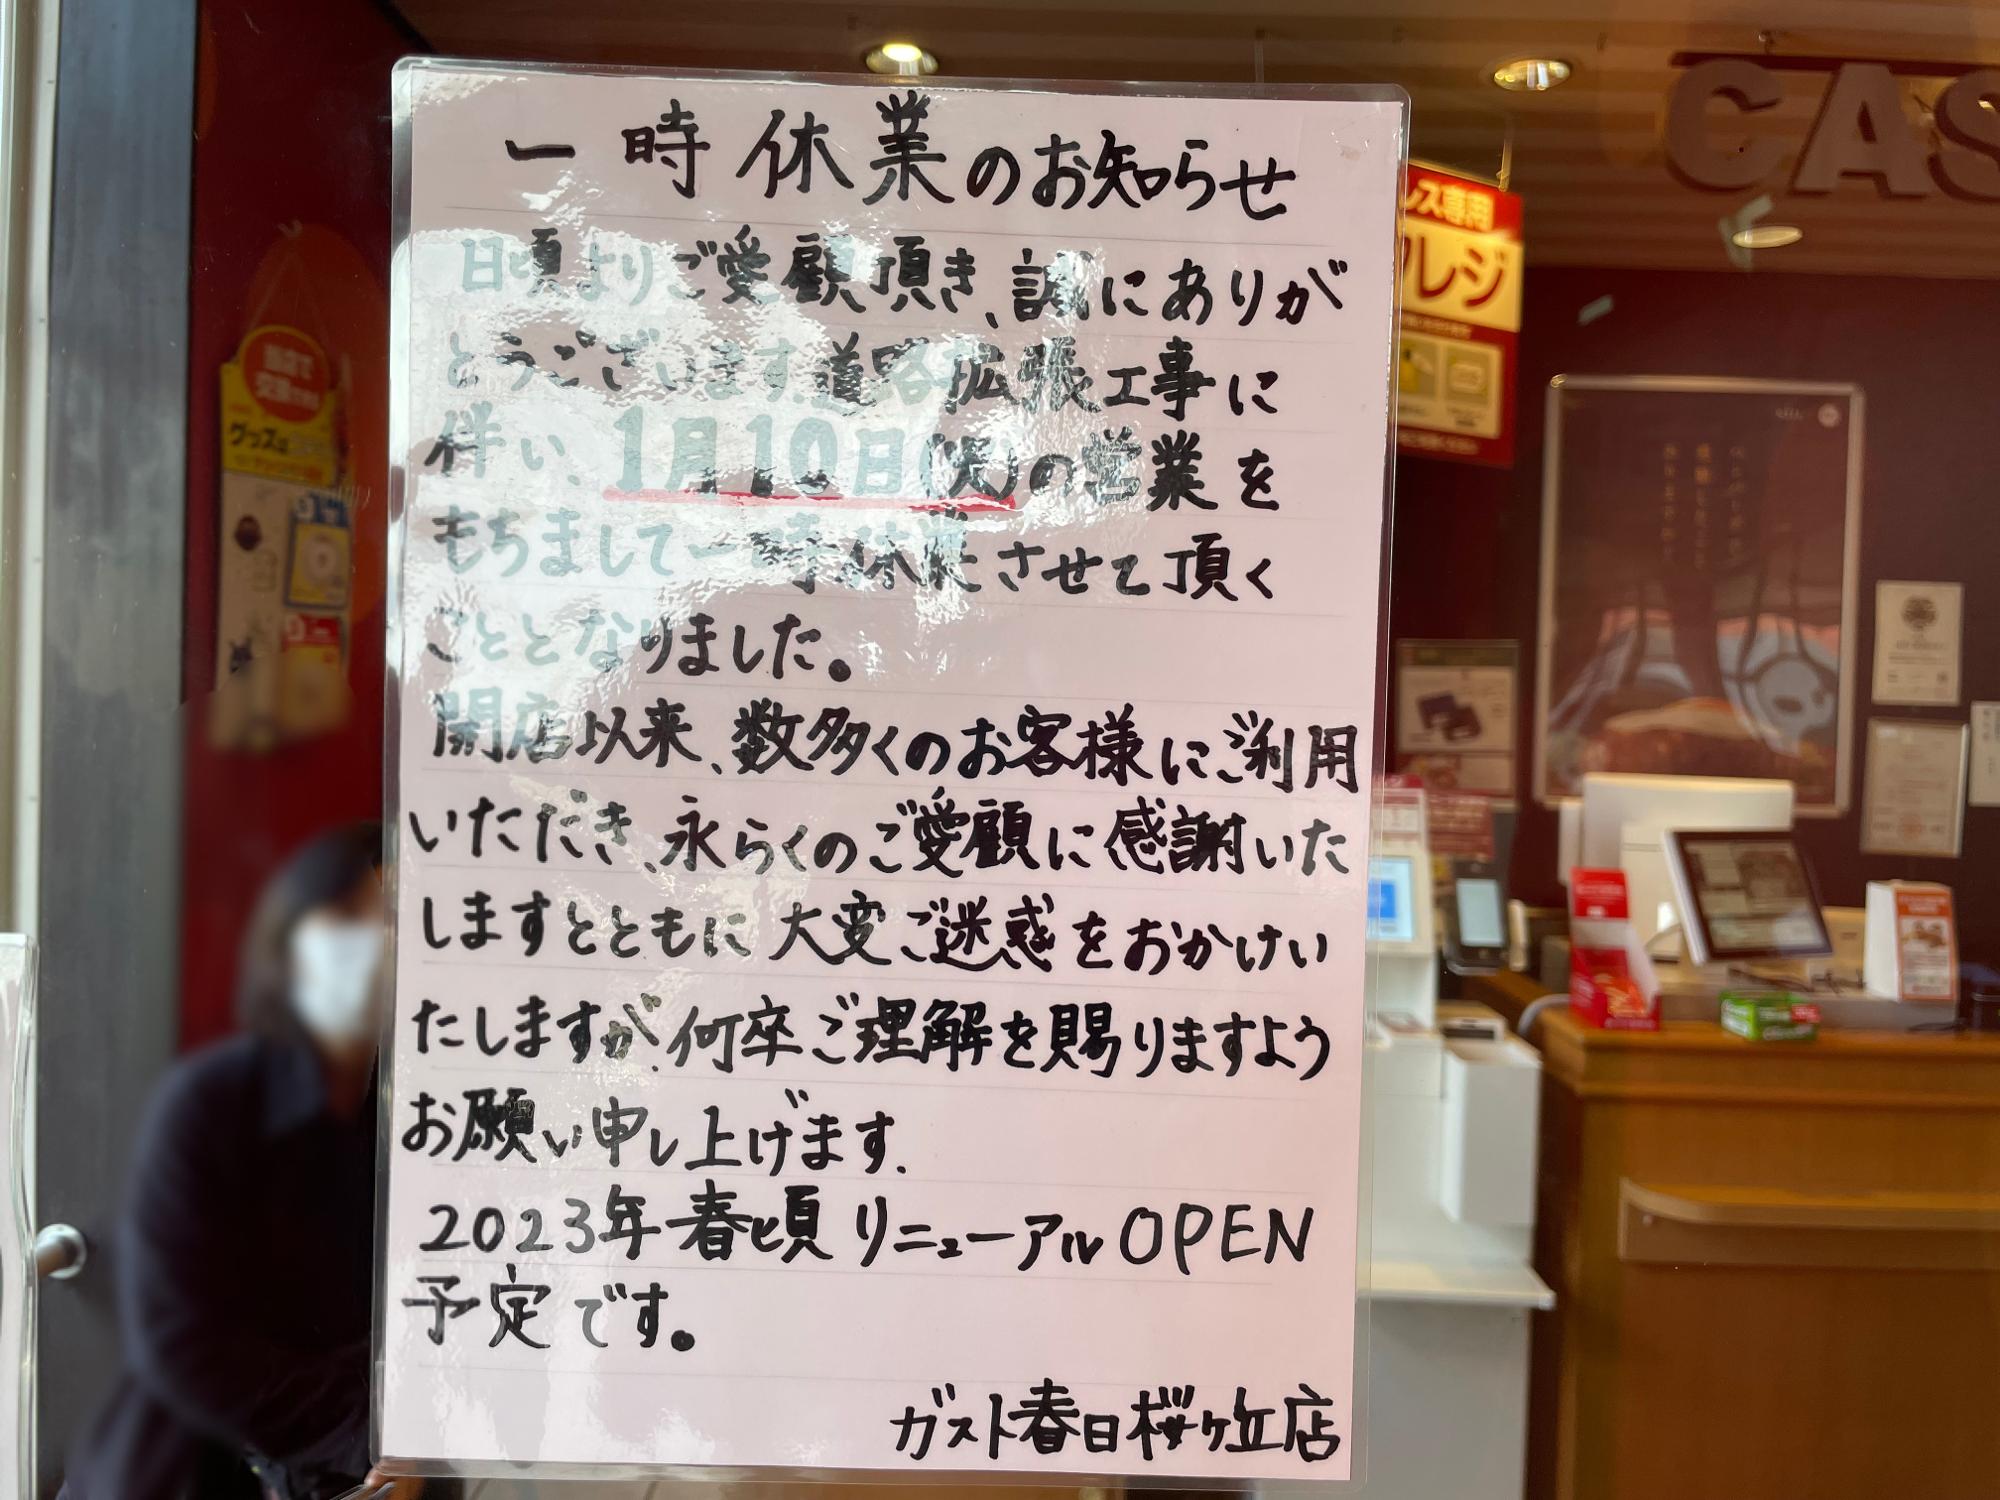 一時休業のお知らせ
日頃よりご愛顧頂き、誠にありが
とうございます。道路拡張工事に
伴い、1月10日(火)の営業を
もちまして一時休業させて頂く
こととなりました。
開店以来、数多くのお客様にご利用
いただき、永らくのご愛顧に感謝いた
しますとともに大変ご迷惑をおかけい
たしますが、何卒ご理解を賜りますよう
お願い申し上げます。
2023年春頃リニューアルOPEN
予定です。
ガスト春日桜ヶ丘店
CAS
レス専用
レジ
当店で
グッズは